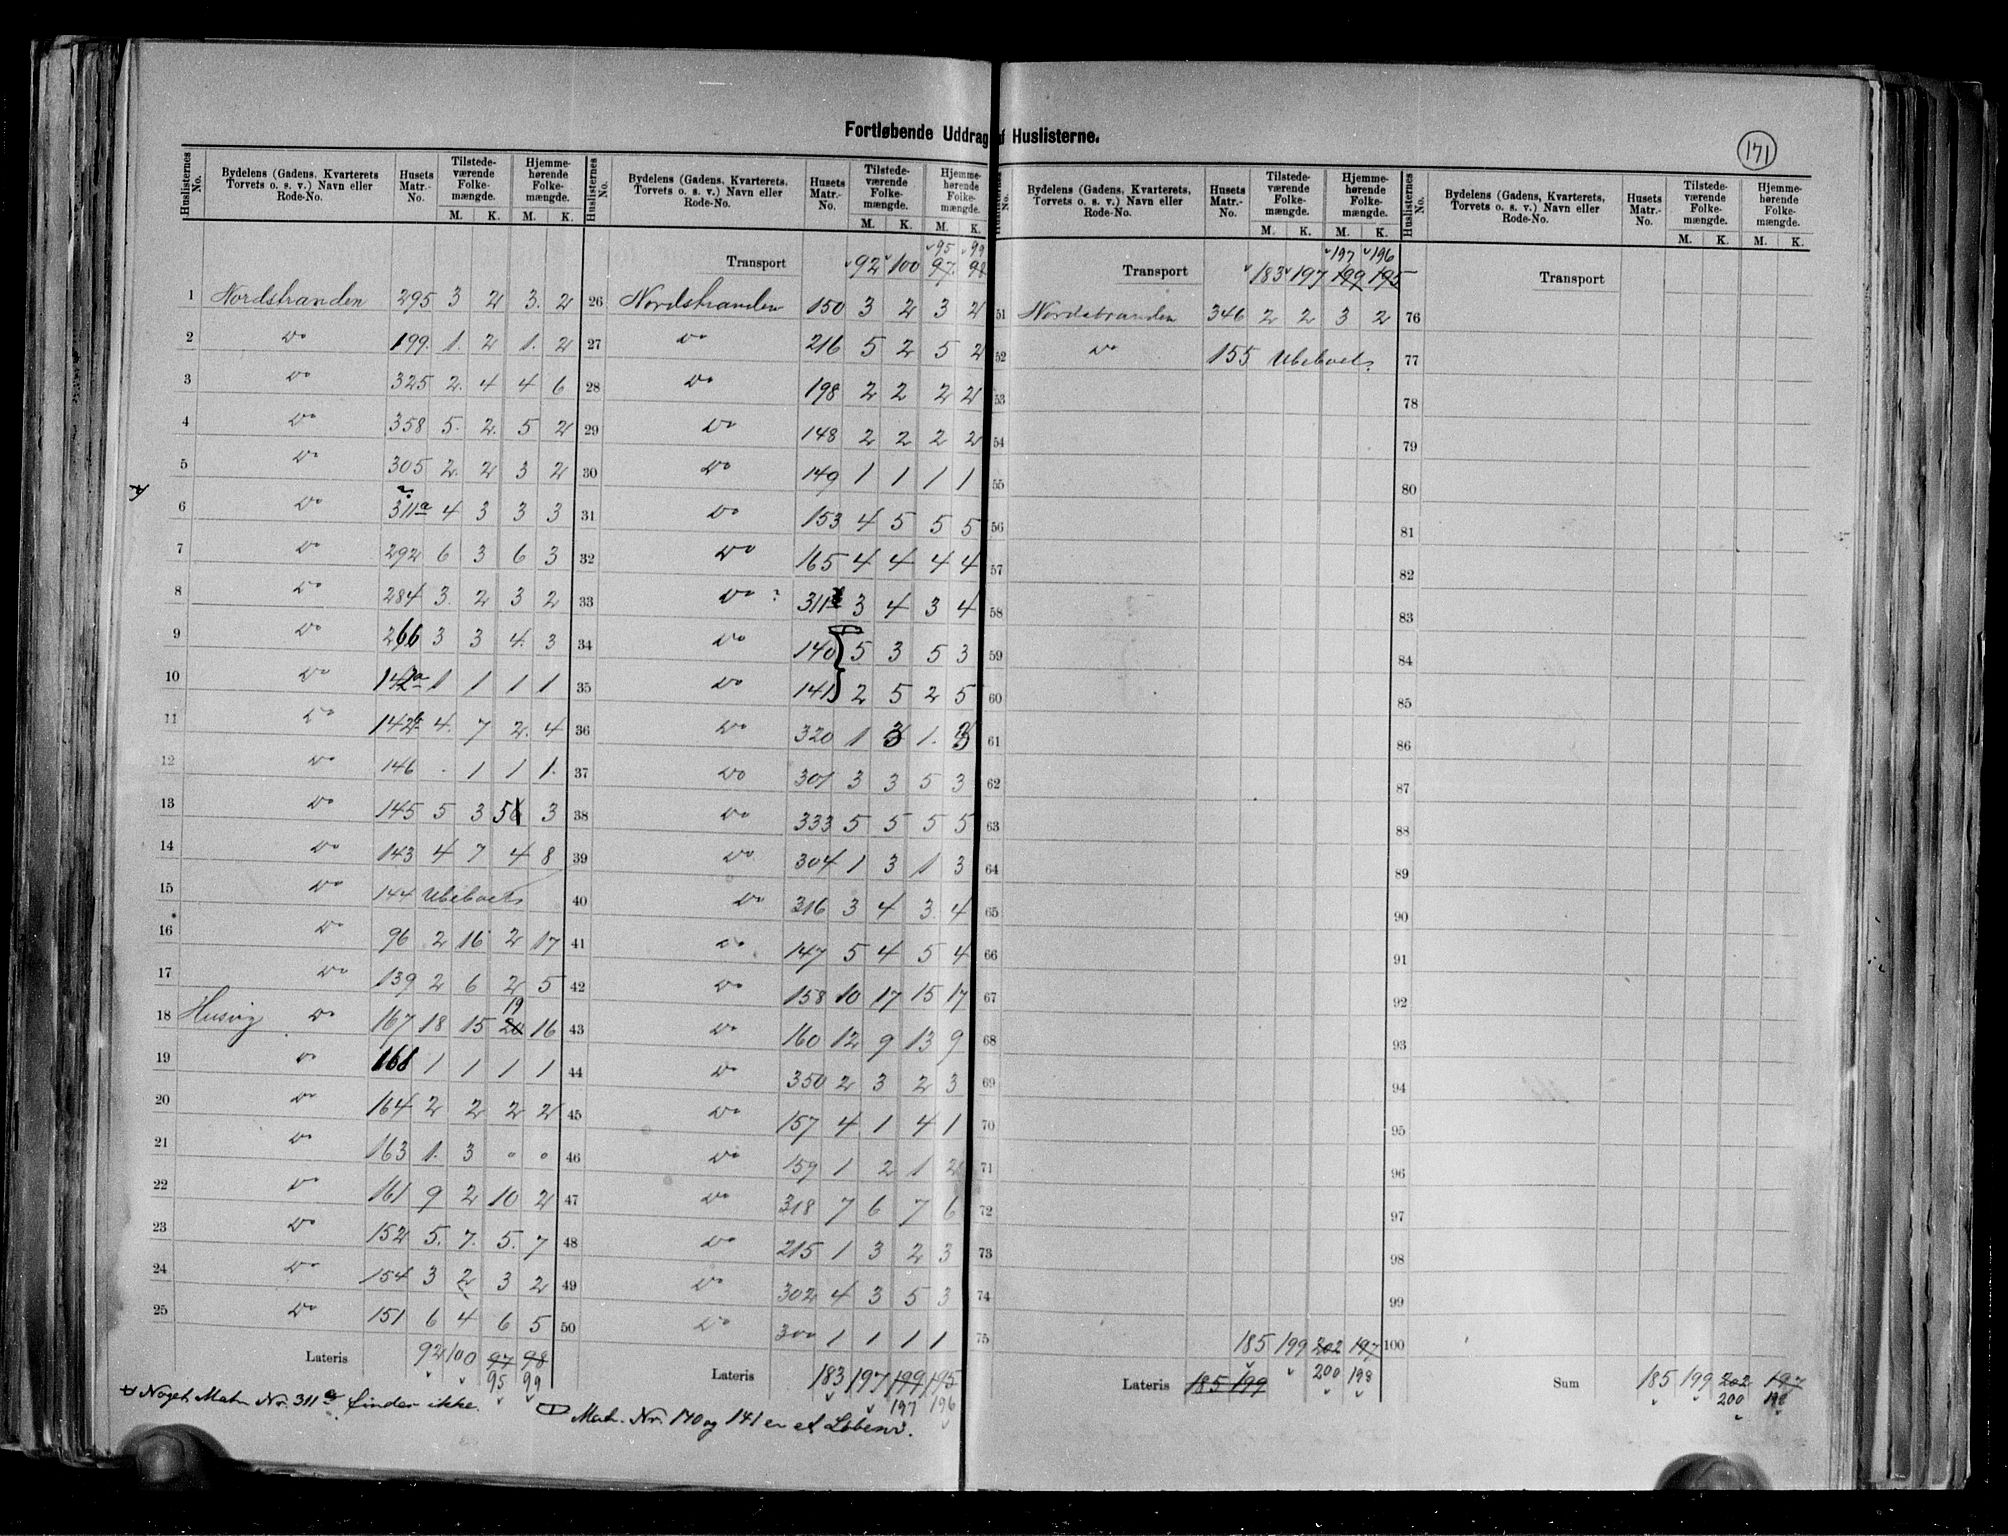 Fortløbende Uddrag af Huslisterne.
171
Huslisternes No. | Bydelens (Gadens, Kvarterets, Torvets o. s. v.) Navn eller Rode-No. | Husets Matr.-No. | Tilstedeværende Folkemængde. M. K. | Hjemmehørende Folkemængde. M. K.
1 Nordstranden 295 3 2 3. 2
2 Do 199. 1. 2 1. 2
3 Do 325 2. 4 4 6
4 Do 358 5. 2. 5 2
5 Do 305 2. 2 3 2
6 Do 311a 4 3 3 3
7 Do 292 6 3 6 3
8 Do 284 3. 2 3 2
9 Do 266 3 3 4. 3
10 Do 142a 1 1 1 1
11 Do 142b 4. 7 2. 4
12 Do 146 . 1 1 1.
13 Do 145 5 3 5 6 3
14 Do 143 4 7 4 8
15 Do 144 Ubeboets
16 Do 96 2 16 2 17
17 Do 139 2 6 2 5
18 Husvig Do 167 18 15 19 20 16
19 Do 168 1 1 1 1
20 Do 164 2 2 2 2
21 Do 163 1. 3 " "
22 Do 161 9 2 10 2
23 Do 152 5. 7. 5. 7
24 Do 154 3 2 3 2
25 Do 151 6 4 6 5
Lateris 92 100 97 98
95 99
Noget Matr. Nr. 311a findes ikke.
Huslisternes No. | Bydelens (Gadens, Kvarterets, Torvets o. s. v.) Navn eller Rode-No. | Husets Matr.-No. | Tilstedeværende Folkemængde. M. K. | Hjemmehørende Folkemængde. M. K.
95 99
Transport 92 100 97. 98
26 Nordstranden 150 3 2 3 2
27 Do 216 5 2 5 2
28 Do 198 2 2 2 2
29 Do 148 2 2 2 2
30 Do 149 1 1 1 1
31 Do 153 4 5 5 5
32 Do 165 4 4 4 4
33 Do 311 3 4 3 4
34 Do 140 5 3 5 3
35 Do 141 2 5 2 5
36 Do 320 1 3 1. 3
37 Do 301 3 3 5 3
38 Do 333 5 5 5 5
39 Do 304 1 3 1 3
40 Do 316 3 4 3. 4
41 Do 147 5 4 5 4
42 Do 158 10 17 15 17
43 Do 160 12 9 13 9
44 Do 350 2 3 2 3
45 Do 157 4 1 4 1
46 Do 159 1 2 1 2
47 Do 318 7 6 7 6
48 Do 215 1 3 2 3
49 Do 302 4 3 5 3
50 Do 300 1 1 1 1
Lateris 183 197 199 195
197 196
Matr. Nr. 140 og 141 er et Løbenr.
Huslisternes No. | Bydelens (Gadens, Kvarterets, Torvets o. s. v.) Navn eller Rode-No. | Husets Matr.-No. | Tilstedeværende Folkemængde. M. K. | Hjemmehørende Folkemængde. M. K.
197 196
Transport 183 197 199 195
51 Nordstranden 346 2 2 3 2
52 Do 155 Ubeboets.
53
54
55
56
57
58
59
60
61
62
63
64
65
66
67
68
69
70
71
72
73
74
75 185 199 202 197
Lateris 185 199 200 198
Huslisternes No. | Bydelens (Gadens, Kvarterets, Torvets o. s. v.) Navn eller Rode-No. | Husets Matr.-No. | Tilstedeværende Folkemængde. M. K. | Hjemmehørende Folkemængde. M. K.
Transport
76
77
78
79
80
81
82
83
84
85
86
87
88
89
90
91
92
93
94
95
96
97
98
99
100
Sum 185 199 202 197
200 198